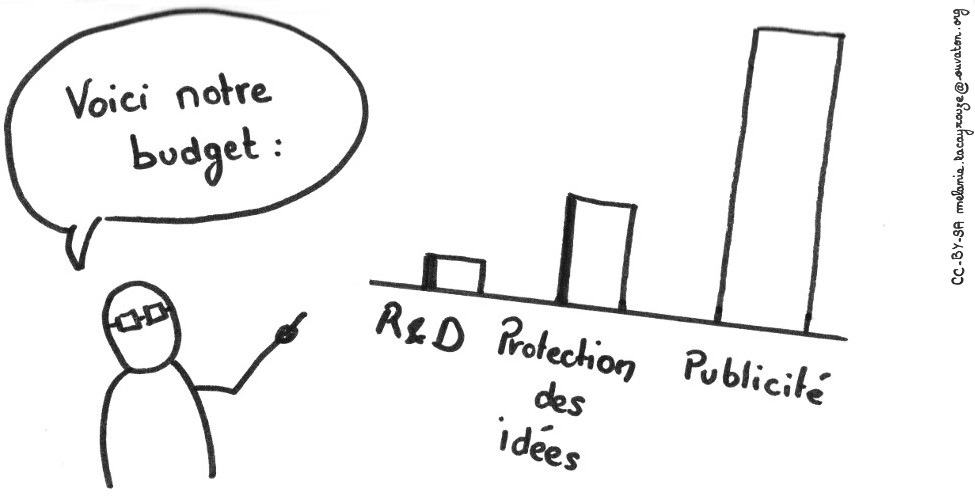 Voici notre
budget :
R&D
Protection
des
idées
Publicité
CC-BY-SA melanie.lacayrouze@ouvaton.org